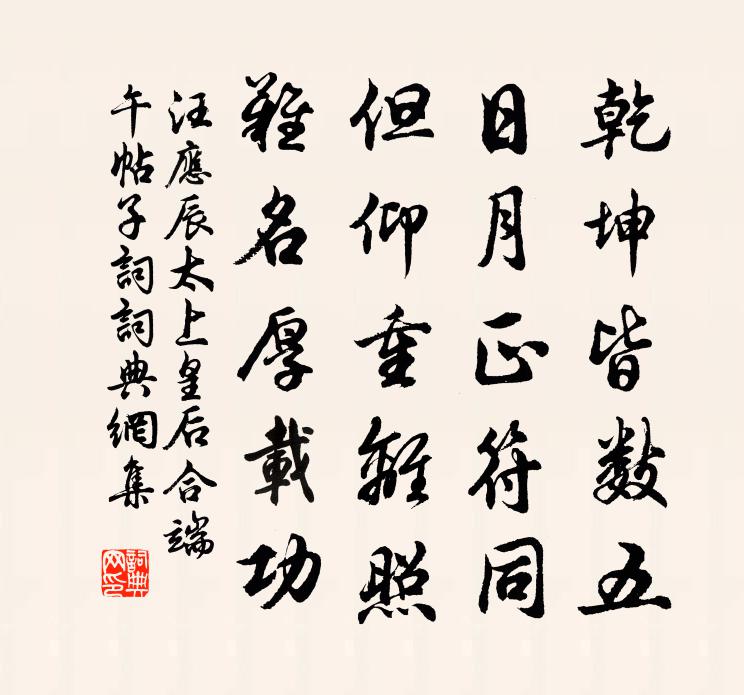 乾坤皆数五
日月正符同
但仰重離照
難名厚載功
汪應辰太上皇后合端
午帖子詞詞典網集
詞典
网印